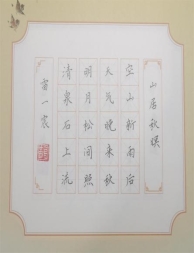 山居秋暝
空山新雨后
天气晚来秋
明月松间照
清泉石上流